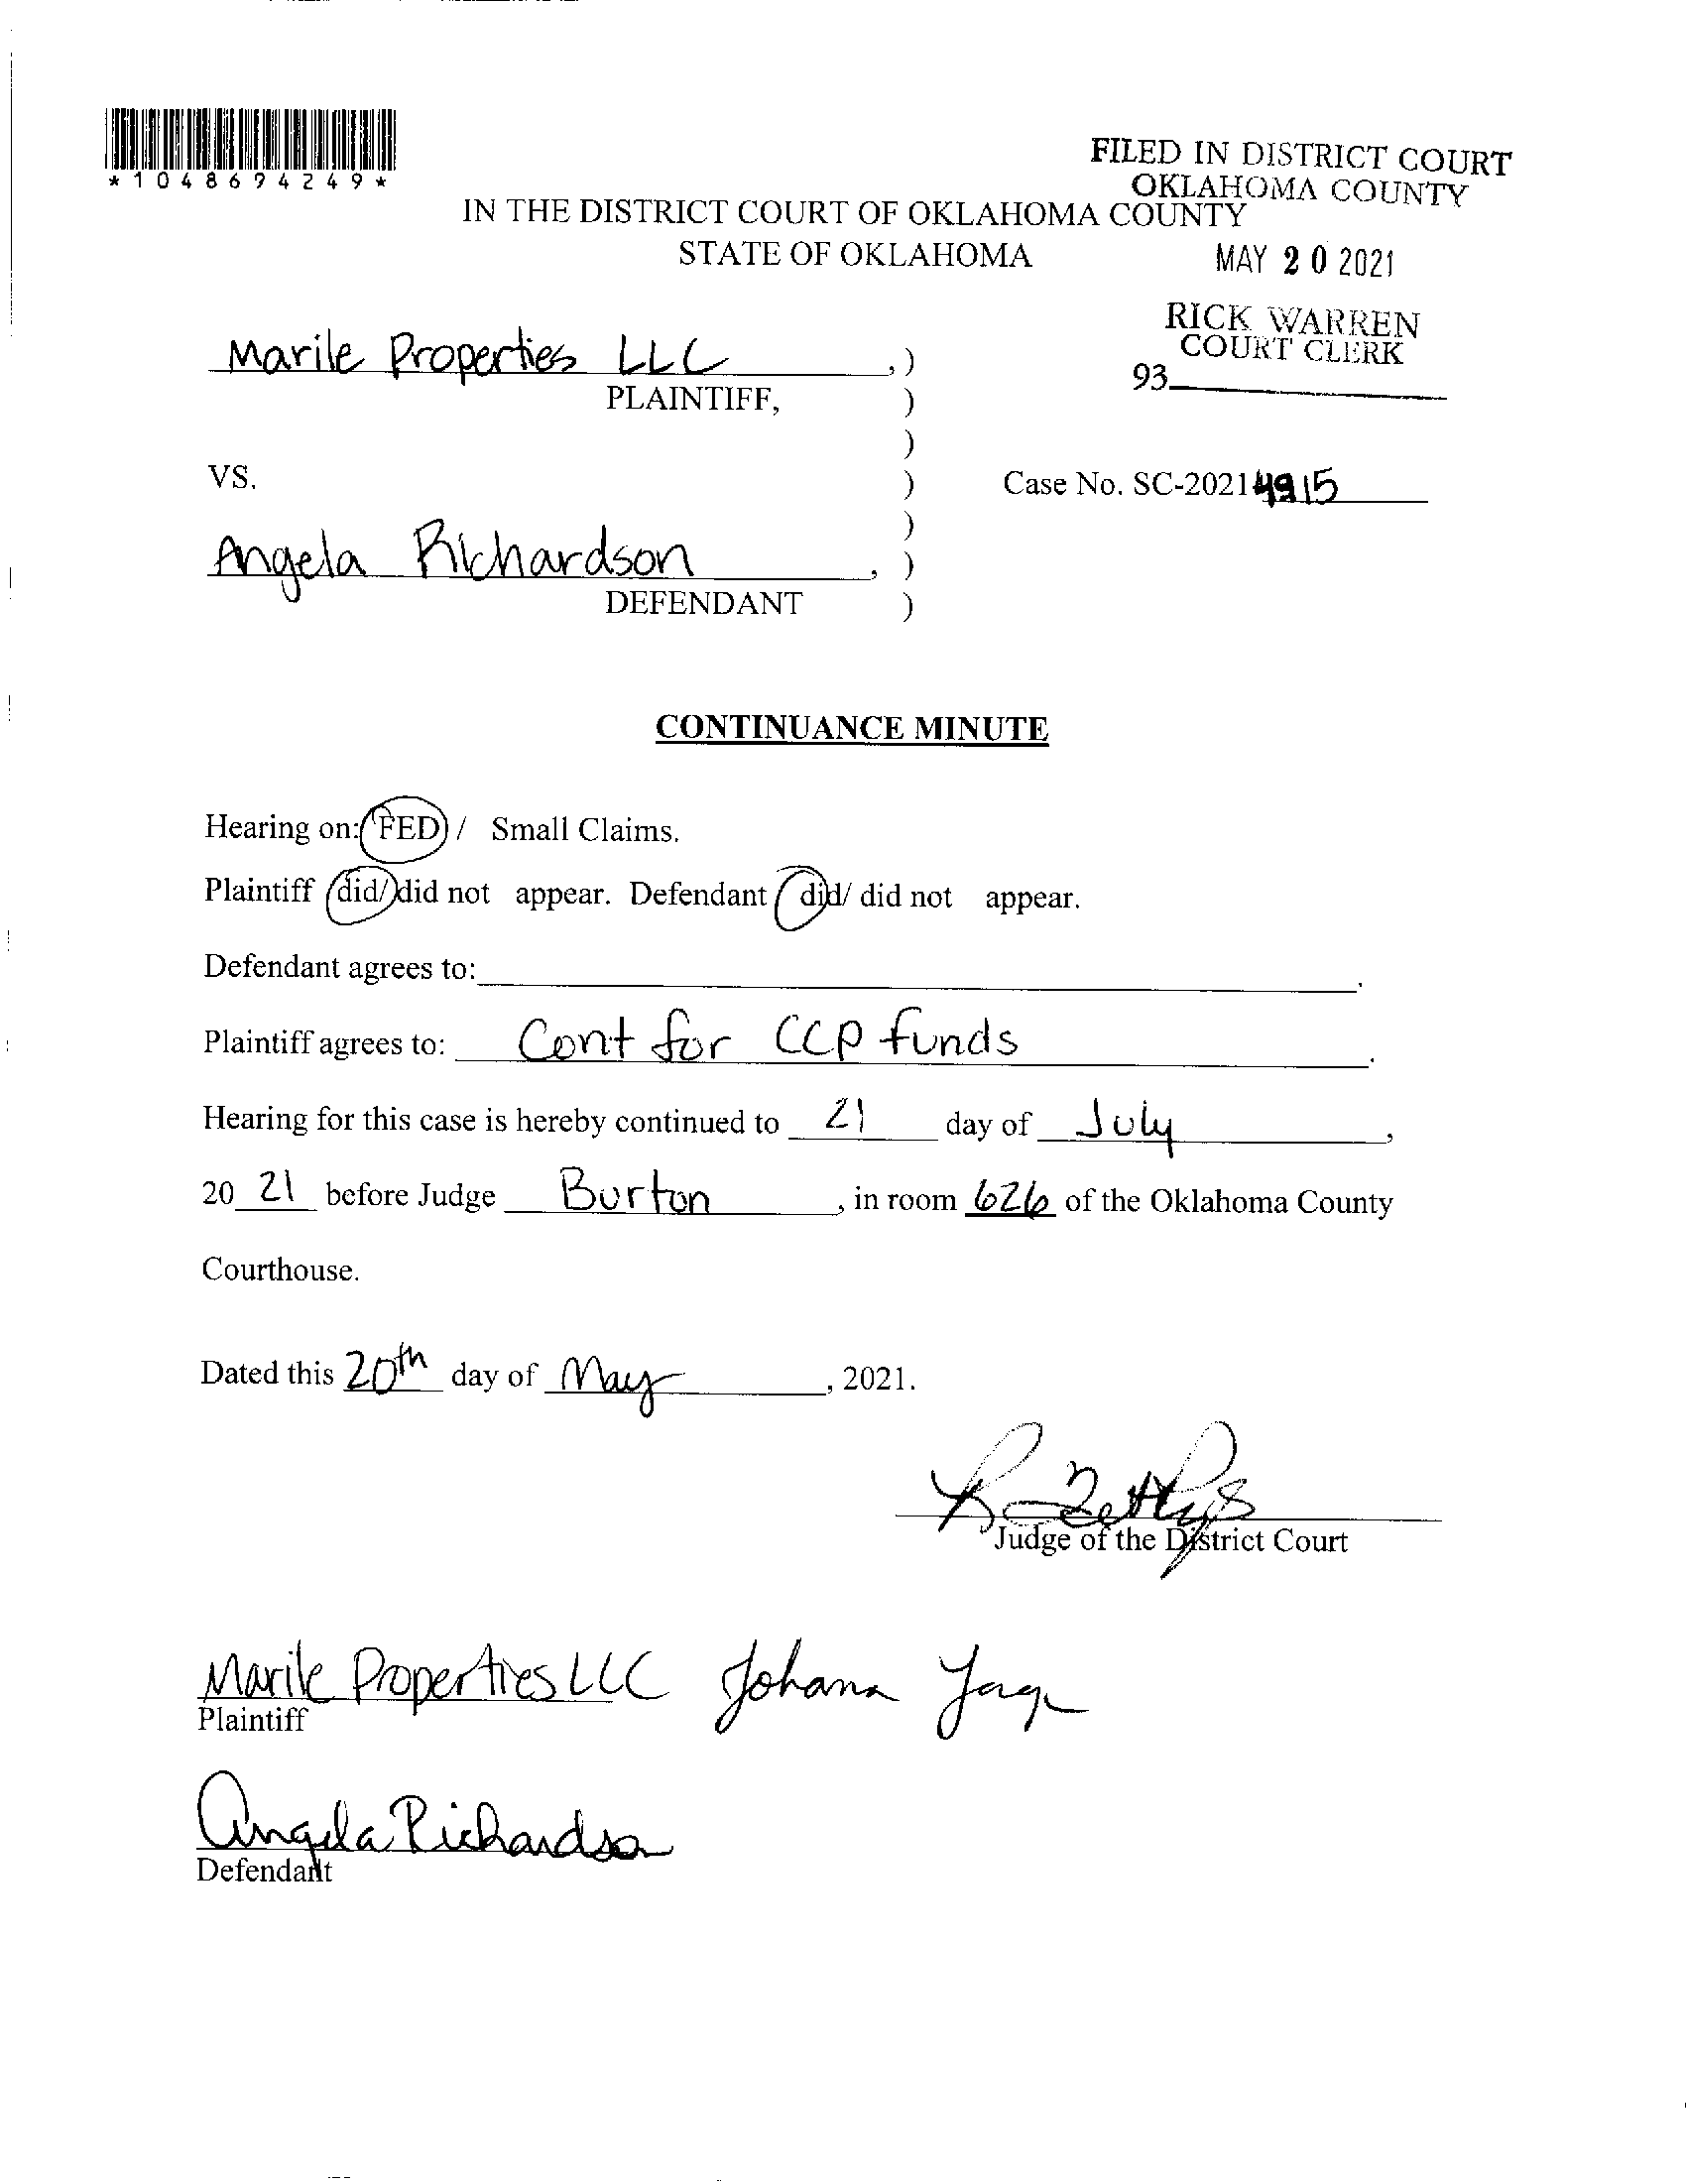 *1048694249*
FILED IN DISTRICT COURT
OKLAHOMA COUNTY
IN THE DISTRICT COURT OF OKLAHOMA COUNTY
STATE OF OKLAHOMA
MAY 20 2021
RICK WARREN
COURT CLERK
93
Marile Properties LLC ,)
PLAINTIFF, )
)
VS. )
Case No. SC-2021 4915
)
Angela Richardson , )
DEFENDANT )
CONTINUANCE MINUTE
Hearing on: FED / Small Claims.
Plaintiff did/did not appear. Defendant did/ did not appear.
Defendant agrees to: .
Plaintiff agrees to: Cont for CCP funds .
Hearing for this case is hereby continued to 21 day of July ,
20 21 before Judge Burton , in room 626 of the Oklahoma County
Courthouse.
Dated this 20th day of May , 2021.
Judge of the District Court
Marile Properties LLC Johana
Plaintiff
Angela Richardson
Defendant